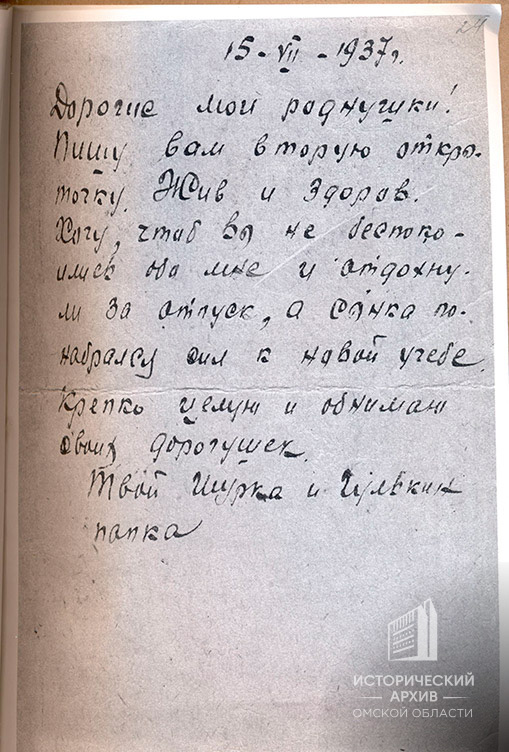 24
15 - VII - 1937 г.
Дорогие мои роднушки!
Пишу вам вторую откры-
точку. Жив и здоров.
Хочу, чтоб вы не беспоко-
ились обо мне и отдохну-
ли за отпуск, а Санка по-
набрался сил к новой учебе.
Крепко целую и обнимаю
своих дорогушек.
Твой Шурка и Гулькин
папка
ИСТОРИЧЕСКИЙ
АРХИВ
ОМСКОЙ ОБЛАСТИ